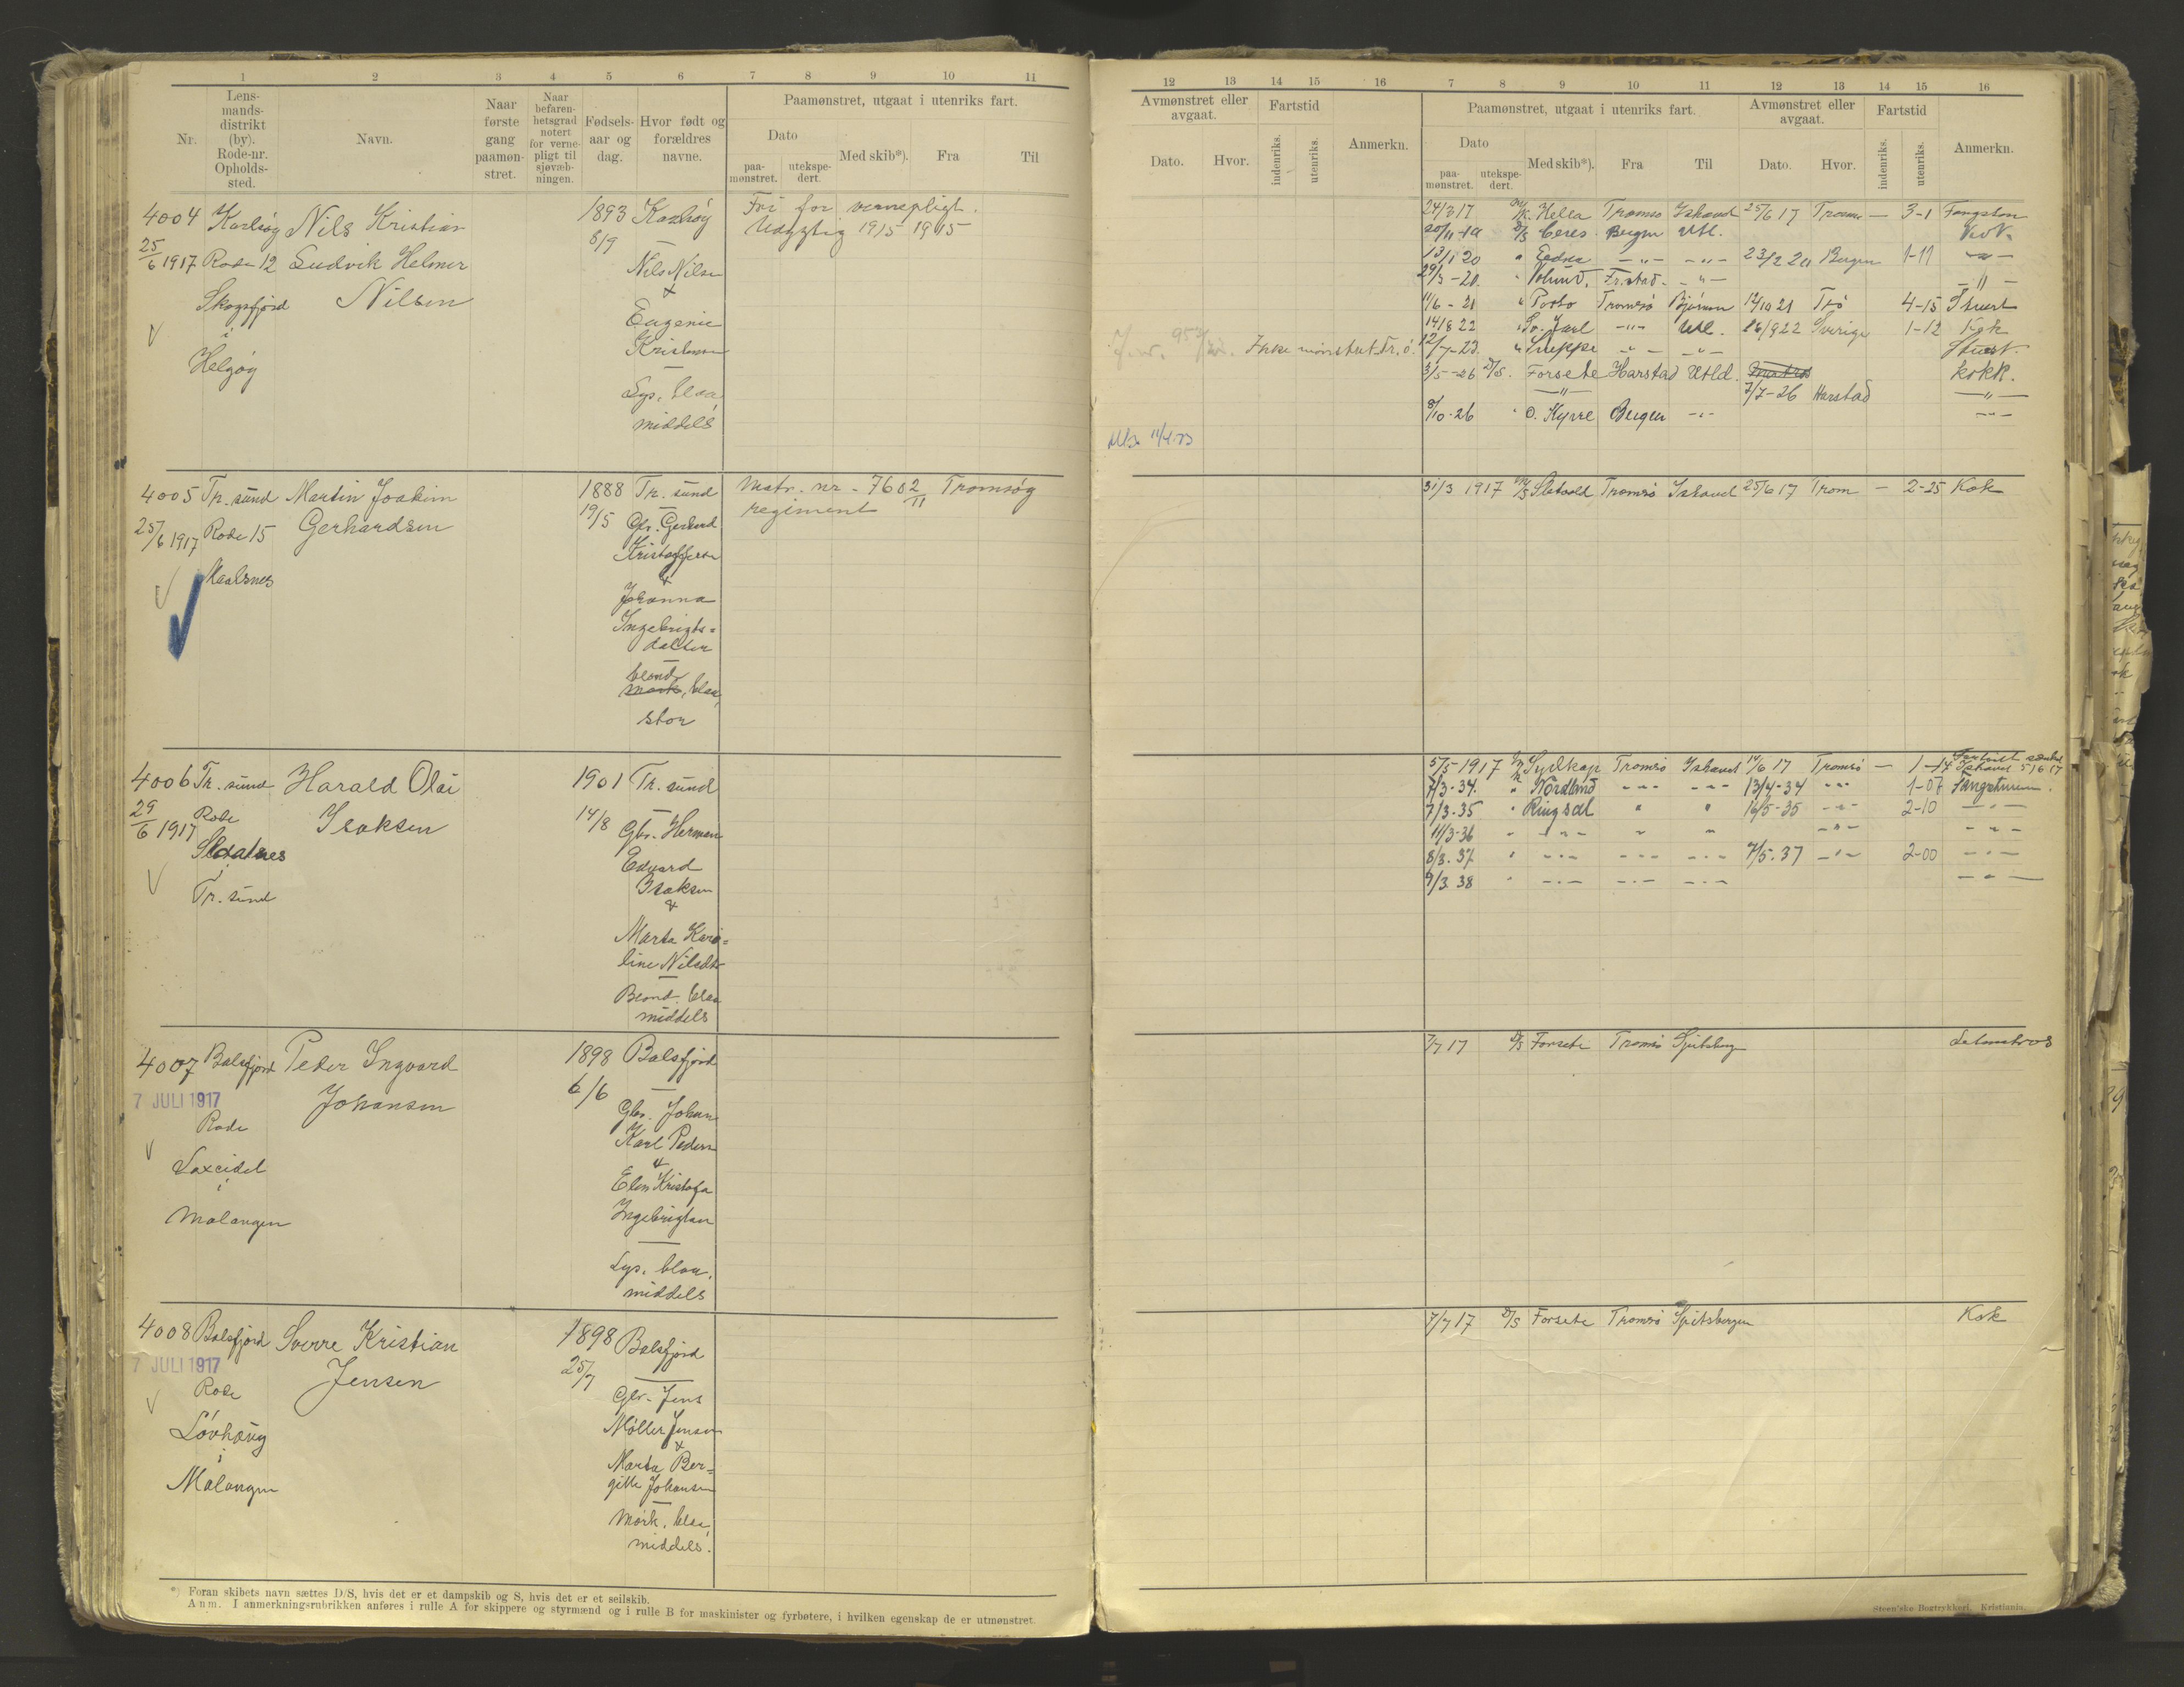 1 2 3 4 5 6 7 8 9 10 11
Nr.
Lens-
mands-
distrikt
(by).
Rode-nr.
Opholds-
sted.
Navn.
Naar
første
gang
paamøn-
stret.
Naar
befaren-
hetsgrad
notert
for verne-
pligt til
sjøvæb-
ningen.
Fødsels-
aar og
dag.
Hvor født og
forældres
navne.
Paamønstret, utgaat i utenriks fart.
Dato
paa-
mønstret.
utekspe-
dert.
Med skib*).
Fra
Til
4004 Karlsøy Nils Kristian 1893 Karlsøy Fri for vernepligt.
8/9 Udygtig 1915 1915
25/6 1917 Rode 12 Ludvik Helmer Nils Nilsen
Skogsfjord Nilsen &
i Eugenie
Helgøy
Lys, blaa,
middels
4005 Tr. sund Martin Joakim 1888 Tr. sund Matr. nr. 7602/11 Tromsøy
25/6 1917 Rode 15 Gerhardsen 19/5 Gbr. Gerhard regiment
Kristoffersen
&
Maalsnes Johanna
Ingebrigts=
datter
blond,
mørk, blaa,
stor
4006 Tr. sund Harald Olai 1901 Tr. sund
29/6 1917 Rode Isaksen 14/8 Gbr. Herman
Edvard
i Isaksen
Tr. sund &
Marta Karo=
line Nilsdtr
Blond, blaa
middels
4007 Balsfjord Peder Ingvard 1898 Balsfjord
7 JULI 1917 Johansen 6/6 Gbr. Johan
Rode Karl Pedersen
&
Laxeidet Elen Kristofa
i Ingebrigtsen
Malangen
Lys, blaa,
middels
4008 Balsfjord Sverre Kristian 1898 Balsfjord
7 JULI 1917 Jensen 25/7
Rode Gbr. Jens
Løvhaug Møller Jensen
i &
Malangen Marta Ber=
gitte Johansen
Mørk, blaa,
middels.
*) Foran skibets navn sættes D/S, hvis det er et dampskib og S, hvis det er et seilskib.
Anm. I anmerkningsrubrikken anføres i rulle A for skippere og styrmænd og i rulle B for maskinister og fyrbøtere, i hvilken egenskap de er utmønstret.
12 13 14 15 16 7 8 9 10 11 12 13 14 15 16
Avmønstret eller
avgaat.
Dato.
Hvor.
Fartstid
indenriks.
utenriks.
Anmerkn.
Paamønstret, utgaat i utenriks fart.
Dato
paa-
mønstret.
utekspe-
dert.
Med skib*).
Fra
Til
Avmønstret eller
avgaat.
Dato.
Hvor.
Fartstid
indenriks.
utenriks.
Anmerkn.
24/3 17 M/K. Hella Tromsø Ishavet 25/6 17 Tromsø — 3-1 Fangstm
20/11-19 D/S Ceres Bergen Utl.
13/1 20 " Edna -"- -"- 23/2 20 Bergen 1-11 -"-
29/3-20. " Fr.stad. -"- -"-
11/6-21 " Porto Tromsø Bjørnøen 12/10 21 Trø 4-15 Stuert
14/8 22 " Sv. Jarl -"- Utl. 26/9 22 Sverige 1-12 Kok
Ikke mønstret Tr.ø. 12/7-23. " Sneppe -"- -"- Stuert.
3/5-26 D/S. Forsete Harstad Utld. kokk.
-"- 7/7-26 Harstad -"-
8/10-26 " O. Kyrre Bergen -"- -"-
11/4.73
31/3 1917 M/S Sletvold Tromsø Ishavet 25/6 17 Trom — 2-25 Kok
5/5-1917 M/K Sydkap Tromsø Ishavet 19/6 17 Tromsø — 1-14 Fartøiet sænket Ishavet 5/6 17
7/3-34. " Nordland -"- -"- 13/4-34 -"- 1-07 Fangstmann.
7/3-35 " Ringsæl " " 16/5-35 -"- 2-10 -"-
11/3-36 " -"- " " -"- -"-
8/3.37 " -"- -"- -"- 7/5.37 -"- 2-00 -"-
9/3 38 " -"- -"- -"- -"-
7/7 17 D/S Forsete Tromsø Spitsbergen Letmatros
7/7 17 D/S Forsete Tromsø Spitsbergen Kok
Steen'ske Bogtrykkeri, Kristiania.